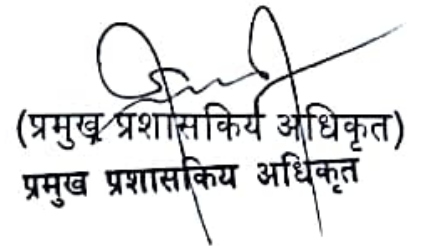 (प्रमुख प्रशासकिय अधिकृत)
प्रमुख प्रशासकिय अधिकृत